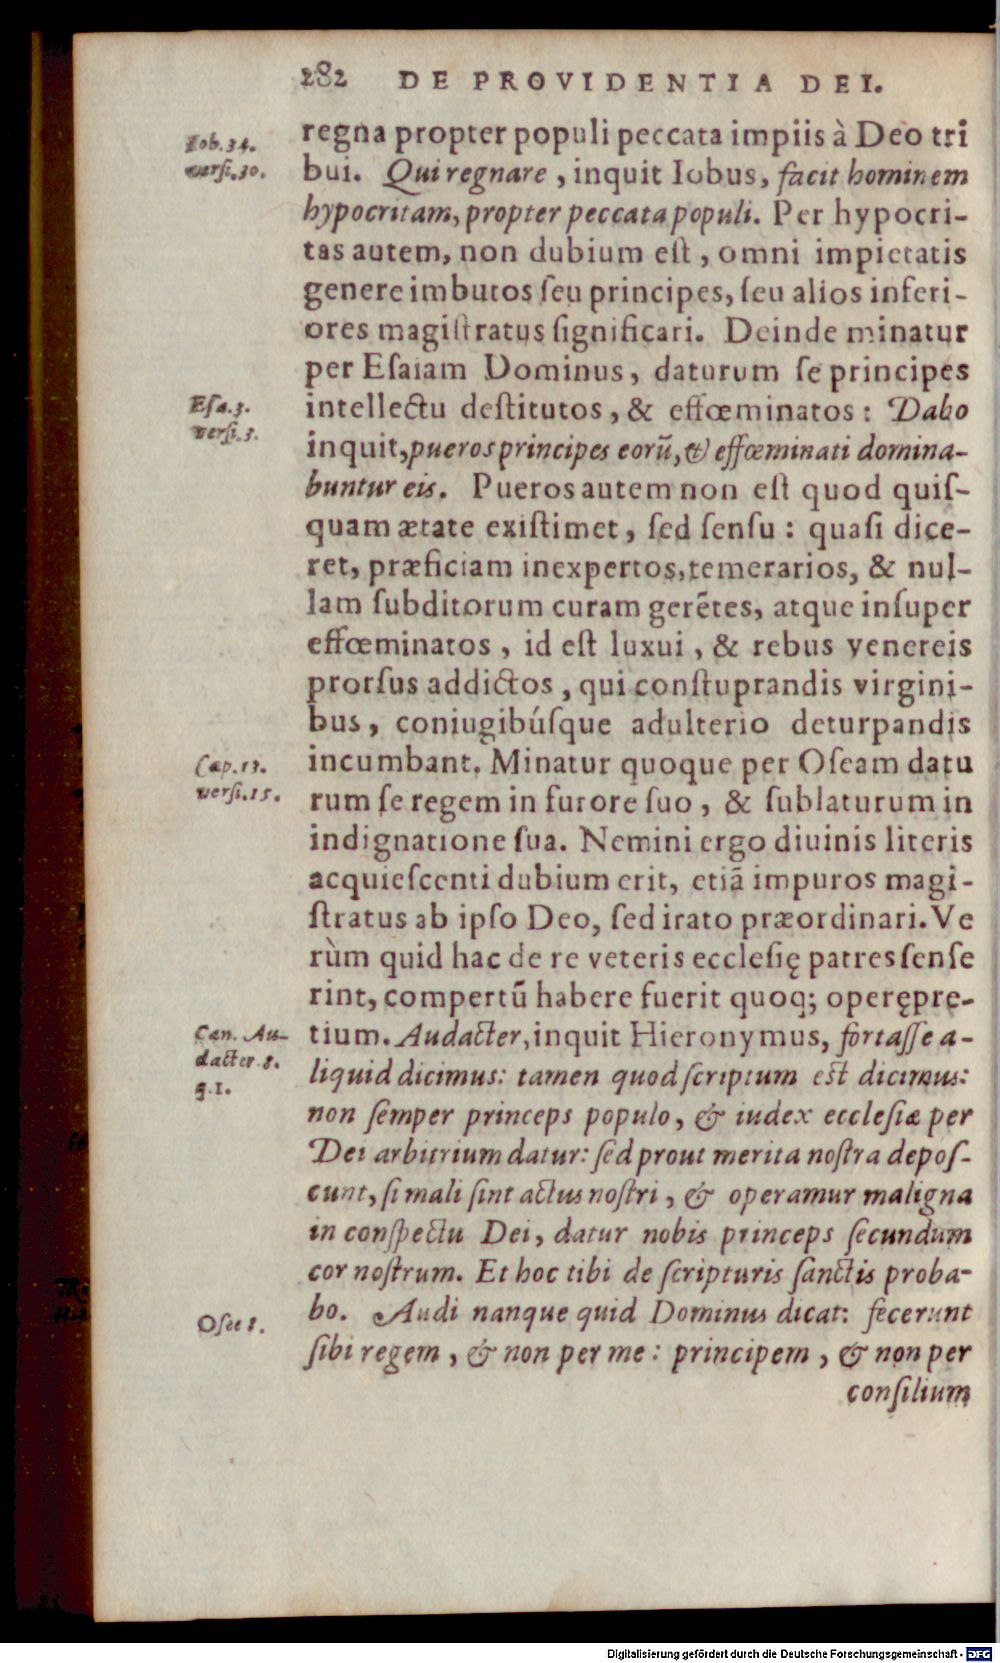 282 DE PROVIDENTIA DEI.
Iob. 34.
versi. 30.
regna propter populi peccata impiis à Deo tri
bui. Qui regnare, inquit Iobus, facit hominem
hypocritam, propter peccata populi. Per hypocri-
tas autem, non dubium eſt, omni impietatis
genere imbutos ſeu principes, ſeu alios inferi-
ores magiſtratus ſignificari. Deinde minatur
per Eſaiam Dominus, daturum ſe principes
Eſa. 3.
verſi. 3.
intellectu deſtitutos, & effœminatos: Dabo
inquit, pueros principes eorū, & effœminati domina-
buntur eis. Pueros autem non eſt quod quiſ-
quam ætate exiſtimet, ſed ſenſu: quaſi dice-
ret, præficiam inexpertos, temerarios, & nul-
lam ſubditorum curam gerētes, atque inſuper
effœminatos, id eſt luxui, & rebus venereis
prorſus addictos, qui conſtuprandis virgini-
bus, coniugibúſque adulterio deturpandis
Cap. 13.
verſi. 15.
incumbant. Minatur quoque per Oſeam datu
rum ſe regem in furore ſuo, & ſublaturum in
indignatione ſua. Nemini ergo diuinis literis
acquieſcenti dubium erit, etiā impuros magi-
ſtratus ab ipſo Deo, ſed irato præordinari. Ve
rùm quid hac de re veteris ecclesię patres ſenſe
rint, compertū habere fuerit quoq; operępre-
Can. Au-
dacter. 8.
q. 1.
tium. Audacter, inquit Hieronymus, fortaſſe a-
liquid dicimus: tamen quod ſcriptum eſt dicimus:
non ſemper princeps populo, & iudex eccleſiæ per
Dei arbitrium datur: ſed prout merita noſtra depoſ-
cunt, ſi mali ſint actus noſtri, & operamur maligna
in conſpectu Dei, datur nobis princeps ſecundum
cor noſtrum. Et hoc tibi de ſcripturis ſanctis proba-
Oſee 8.
bo. Audi nanque quid Dominus dicat: fecerunt
ſibi regem, & non per me: principem, & non per
conſilium
Digitalisierung gefördert durch die Deutsche Forschungsgemeinschaft - DFG